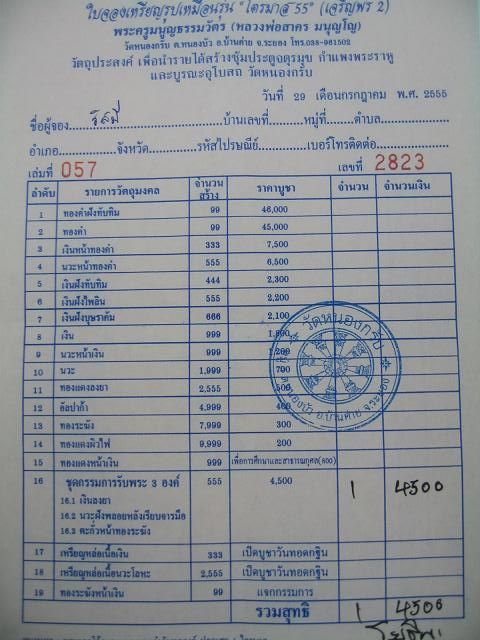 ใบจองเหรียญรูปเหมือนรุ่น "ไตรมาส 55" (เจริญพร 2)
พระครูมนูญธรรมวัตร (หลวงพ่อสาคร มนุญฺโญ)
วัดหนองกรับ ต.หนองบัว อ.บ้านค่าย จ.ระยอง โทร.038-961502
วัตถุประสงค์ เพื่อนำรายได้สร้างซุ้มประตูจตุรมุข กำแพงพระราหู
และบูรณะอุโบสถ วัดหนองกรับ
วันที่ 29 เดือนกรกฎาคม พ.ศ. 2555
ชื่อผู้จอง รัสมี่ บ้านเลขที่ หมู่ที่ ตำบล
อำเภอ จังหวัด รหัสไปรษณีย์ เบอร์โทรติดต่อ
เล่มที่ 057 เลขที่ 2823
ลำดับ รายการวัตถุมงคล จำนวนสร้าง ราคาบูชา จำนวน จำนวนเงิน
1 ทองคำฝังทับทิม 99 46,000
2 ทองคำ 99 45,000
3 เงินหน้าทองคำ 333 7,500
4 นวะหน้าทองคำ 555 6,500
5 เงินฝังทับทิม 444 2,300
6 เงินฝังไพลิน 555 2,200
7 เงินฝังบุษราคัม 666 2,100
8 เงิน 999
9 นวะหน้าเงิน 999 1,200
10 นวะ 1,999 700
11 ทองแดงลงยา 2,555 500
12 อัลปาก้า 4,999 400
13 ทองระฆัง 7,999 300
14 ทองแดงผิวไฟ 9,999 200
15 ทองแดงหน้าเงิน 999 เพื่อการศึกษาและสาธารณกุศล(600)
16 ชุดกรรมการรับพระ 3 องค์ 555 4,500 1 4500
16.1 เงินลงยา
16.2 นวะฝังพลอยหลังเรียบจารมือ
16.3 ตะกั่วหน้าทองระฆัง
17 เหรียญหล่อเนื้อเงิน 333 เปิดบูชาวันทอดกฐิน
18 เหรียญหล่อเนื้อนวะโลหะ 2,555 เปิดบูชาวันทอดกฐิน
19 ทองระฆังหน้าเงิน 99 แจกกรรมการ
รวมสุทธิ 1 4500
วัดหนองกรับ